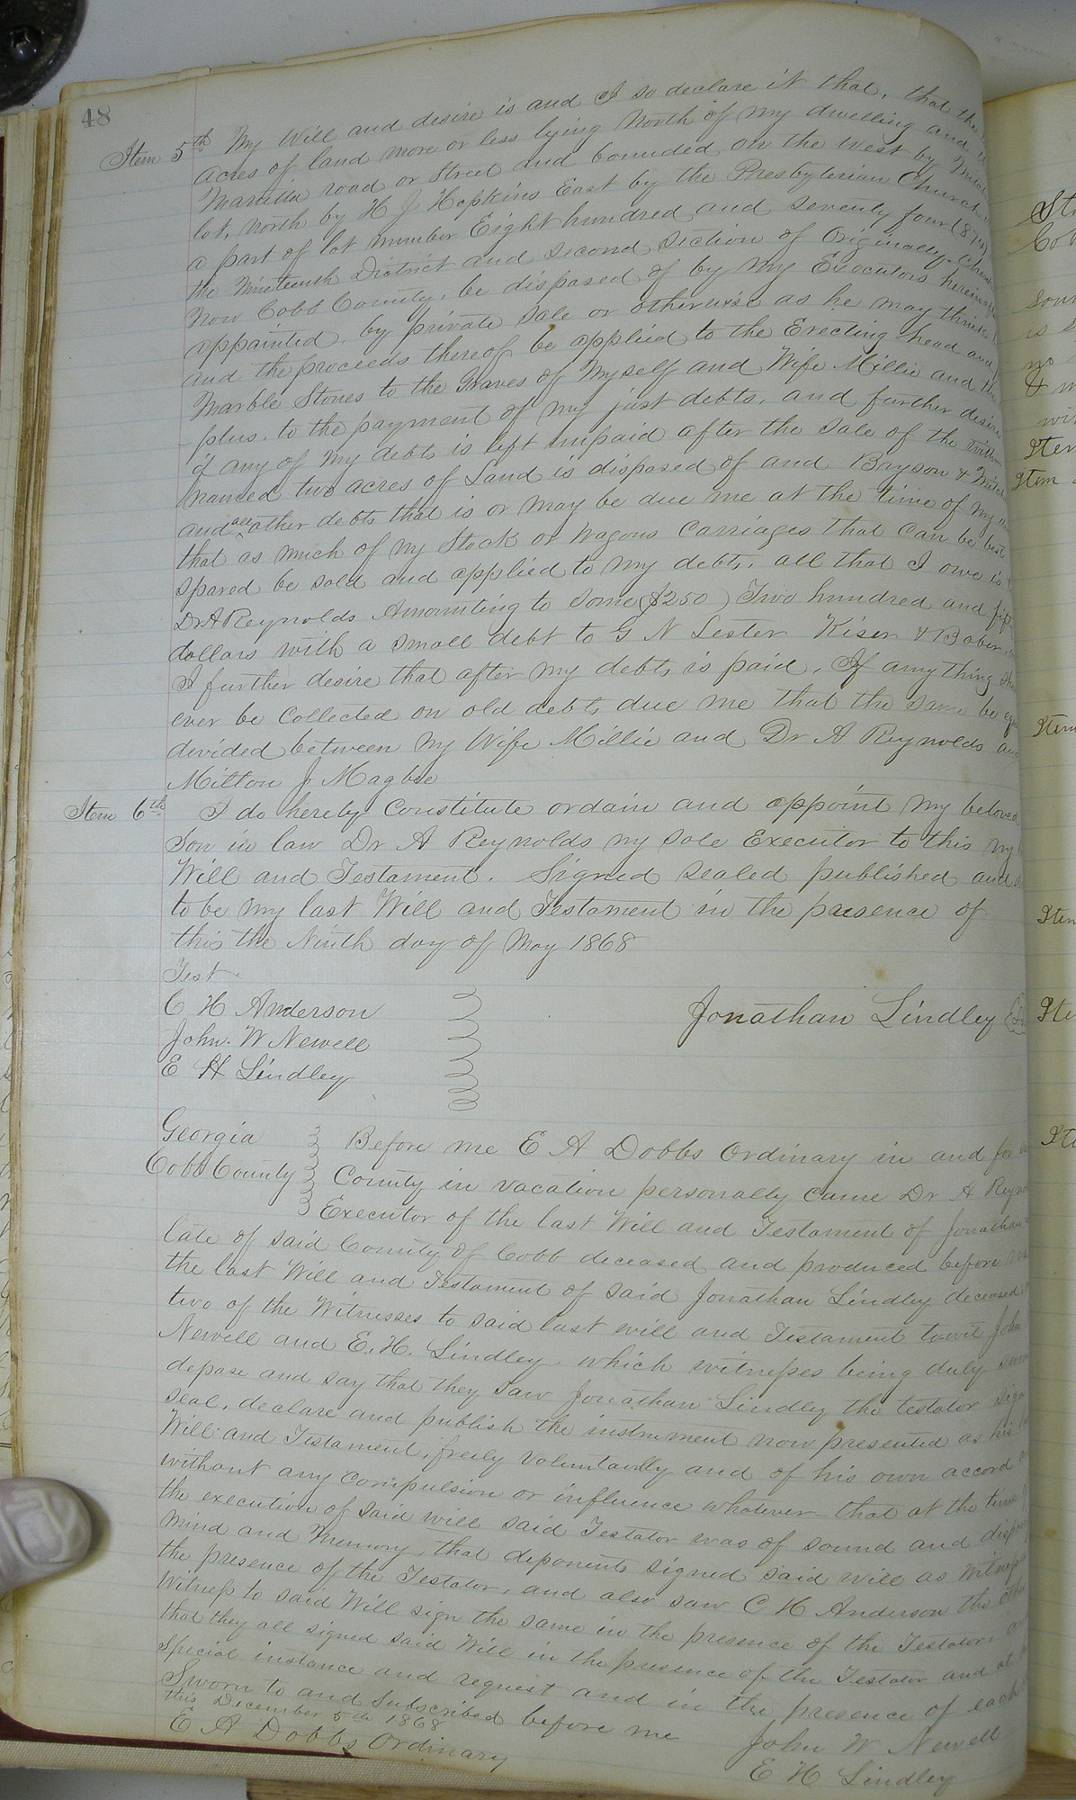 48
Item 5th My Will and desire is and I so declare it that, that the
acres of land more or less lying North of my dwelling and
Marietta road or Street and bounded on the West by
lot, North by H J Hopkins East by the Presbyterian Church
a part of lot number Eight hundred and seventy four (874)
the Nineteenth District and second section of Originally
now Cobb County, be disposed of by my Executors
appointed, by private sale or otherwise as he may think
and the proceeds thereof be applied to the Erecting head and
Marble Stones to the Graves of Myself and Wife Millie and the
plus, to the payment of my just debts, and further desire
if any of my debts is left unpaid after the sale of the
named two acres of Land is disposed of and Bryson &
and all other debts that is or may be due me at the time of my
that as much of my Stock or Wagons Carriages that can be best
spared be sold and applied to my debts, all that I owe is
Dr A Reynolds Amounting to some ($250) Two hundred and
dollars with a small debt to G N Lester Kiser & Baber
I further desire that after my debts is paid, If anything
ever be Collected on old debts due me that the same be
devided between my Wife Millie and Dr A Reynolds
Milton J Magbee
Item 6th I do hereby Constitute ordain and appoint my beloved
Son in law Dr A Reynolds my sole Executor to this my
Will and Testament. Signed sealed published and
to be my last Will and Testament in the presence of
this the Ninth day of May 1868
Test
C H Anderson
John W Newell
E H Lindley
Jonathan Lindley
Georgia
Cobb County
Before me E A Dobbs Ordinary in and for
County in vacation personally came Dr A
Executor of the last Will and Testament of Jonathan
late of said County of Cobb deceased and produced before
the last Will and Testament of said Jonathan Lindley deceased
two of the Witnesses to said last will and Testament towit John
Newell and E. H. Lindley which witnesses being duly
depose and say that they saw Jonathan Lindley the testator sign
seal, declare and publish the instrument now presented as his
Will and Testament, freely voluntarilly and of his own accord
without any compulsion or influence whatever that at the time
the execution of said will said Testator was of sound and
mind and memory, that deponents signed said will as Witness
the presence of the Testator, and also saw C H Anderson the other
Witness to said Will sign the same in the presence of the Testator,
that they all signed said Will in the presence of the Testator and at
special instance and request and in the presence of each
Sworn to and Subscribed before me
this December 5th 1868
E A Dobbs Ordinary
John W Newell
E H Lindley
Item
Item
Item